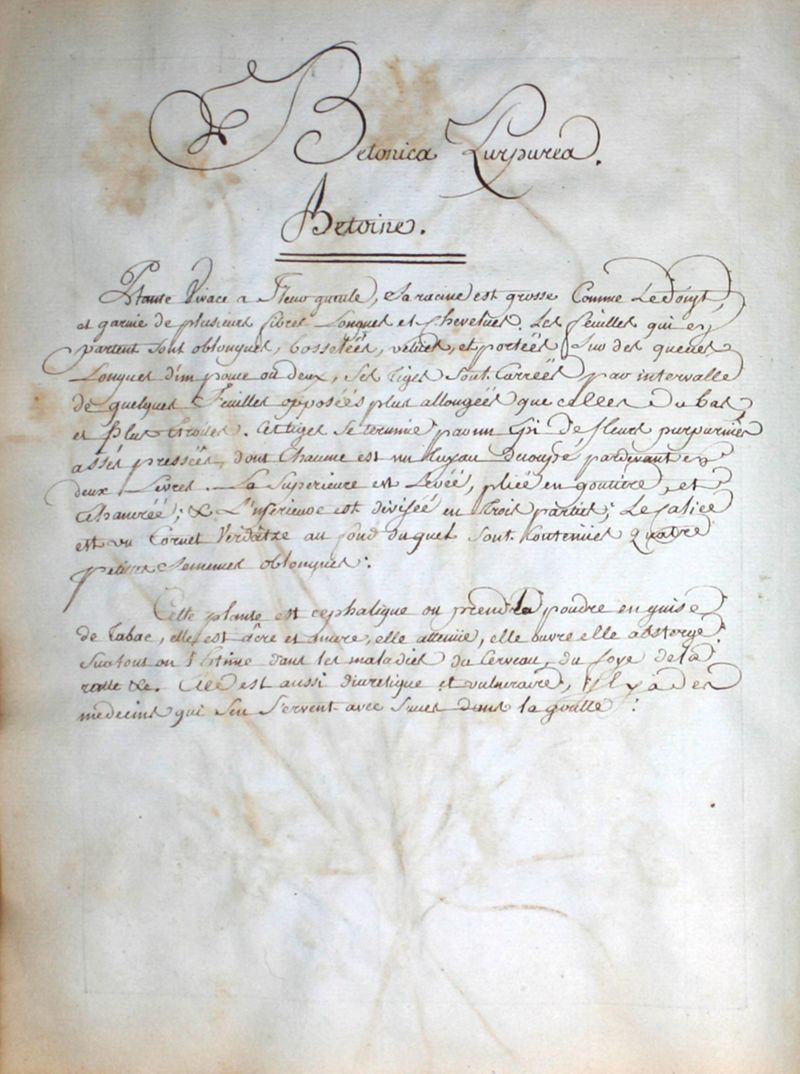 Betonica Purpurea.
Betoine.
Plante Vivace a Fleur gueule, Sa racine est grosse Comme Le Doigt,
et garnie de plusieurs fibres Longues et Chevelues. Les feuilles qui en
partent sont oblongues, bosselées, velues, et portées Sur des queues
Longues d'un pouce ou deux, Ses tiges Sont Carrées par intervalle
de quelques Feuilles opposées plus allongées que celles Du bas
et plus étroites. Ces tiges Se termine par un Epi de fleurs purpurines
assés pressées, dont Chacune est un tuyau Découpé par devant en
deux Levres. La Superieure est Levée, pliée en goutiere, et
échancrée; & L'inferieure est divisée en trois parties; Le Calice
est un Cornet Verdâtre au fond duquel Sont Contenues Quatre
petites Semences oblongues:
Cette plante est cephalique on prend La poudre en guise
de Tabac, elle est âcre et amere, elle attenue, elle ouvre elle absterge.
Surtout on l'Estime dans les maladies du Cerveau, du foye de la
ratte &c. Elle est aussi diuretique et vulneraire, il y a des
medecins qui s'en Servent avec Succes dans la goutte: